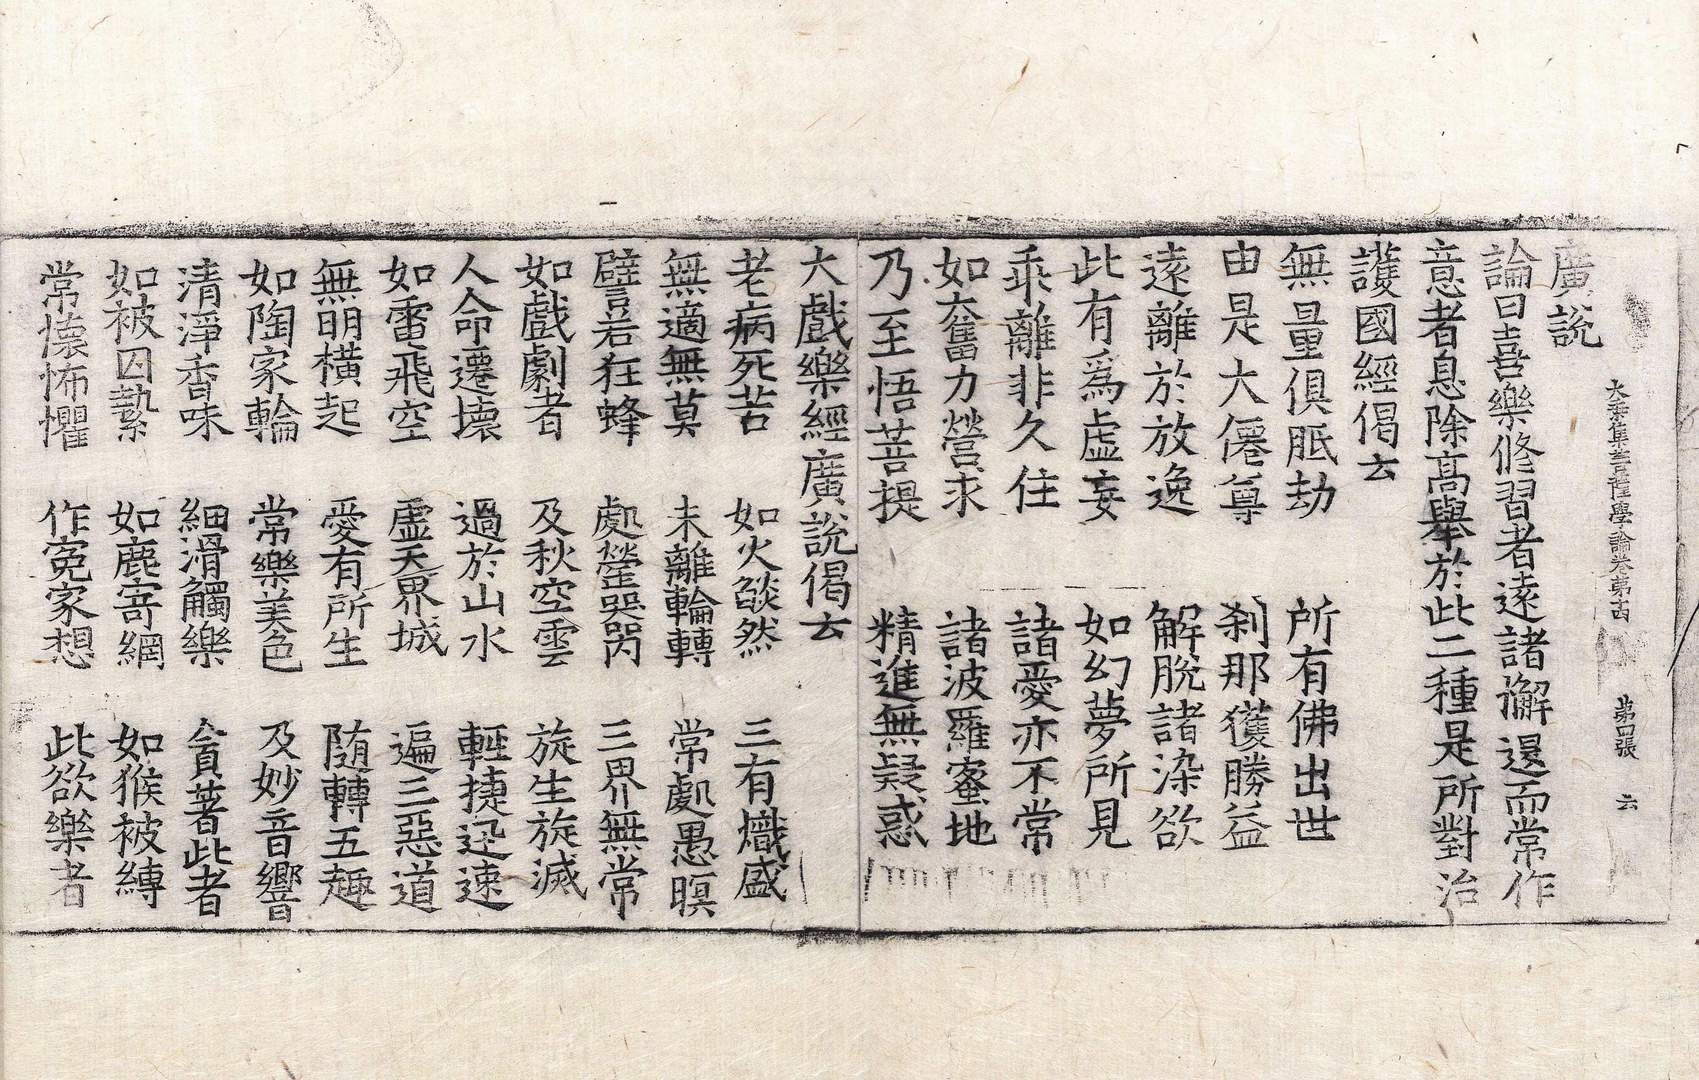 大乘集菩薩學論卷第十四 第四張 云
廣說
論曰喜樂修習者遠諸懈退而常作
意者息除高舉於此二種是所對治
護國經偈云
無量俱胝劫 所有佛出世
由是大僊尊 剎那獲勝益
遠離於放逸 解脫諸染欲
此有爲虛妄 如幻夢所見
乖離非久住 諸愛亦不常
如奮力營求 諸波羅蜜地
乃至悟菩提 精進無疑惑
大戲樂經廣說偈云
老病死苦 如火燄然 三有熾盛
無適無莫 未離輪轉 常處愚暝
譬若狂蜂 處瑩器丙 三界無常
如戲劇者 及秋空雲 旋生旋滅
人命遷壞 過於山水 輕捷迅速
如雷飛空 虛天界城 遍三惡道
無明橫起 愛有所生 随轉五趣
如陶家輪 常樂美色 及妙音響
清淨香味 細滑觸樂 貪著此者
如被囚縶 如鹿寄網 如猴被縛
常懷怖懼 作冤家想 此欲樂者